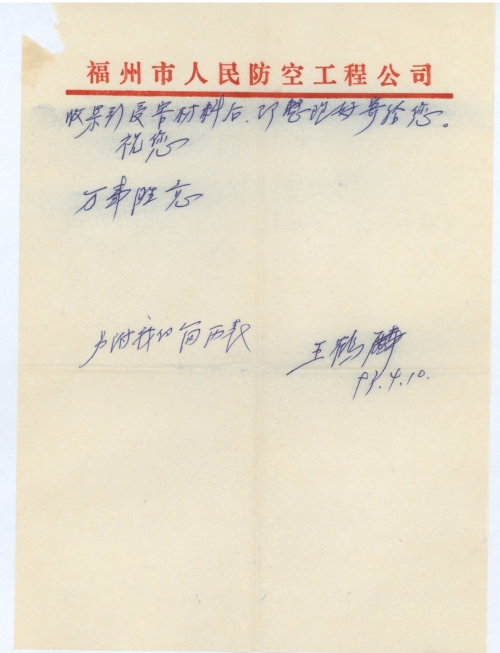 福州市人民防空工程公司
收集到受害材料后,即整理好寄给您。
祝您
万事胜意
另附我的简历表
王鹤
93.4.10.